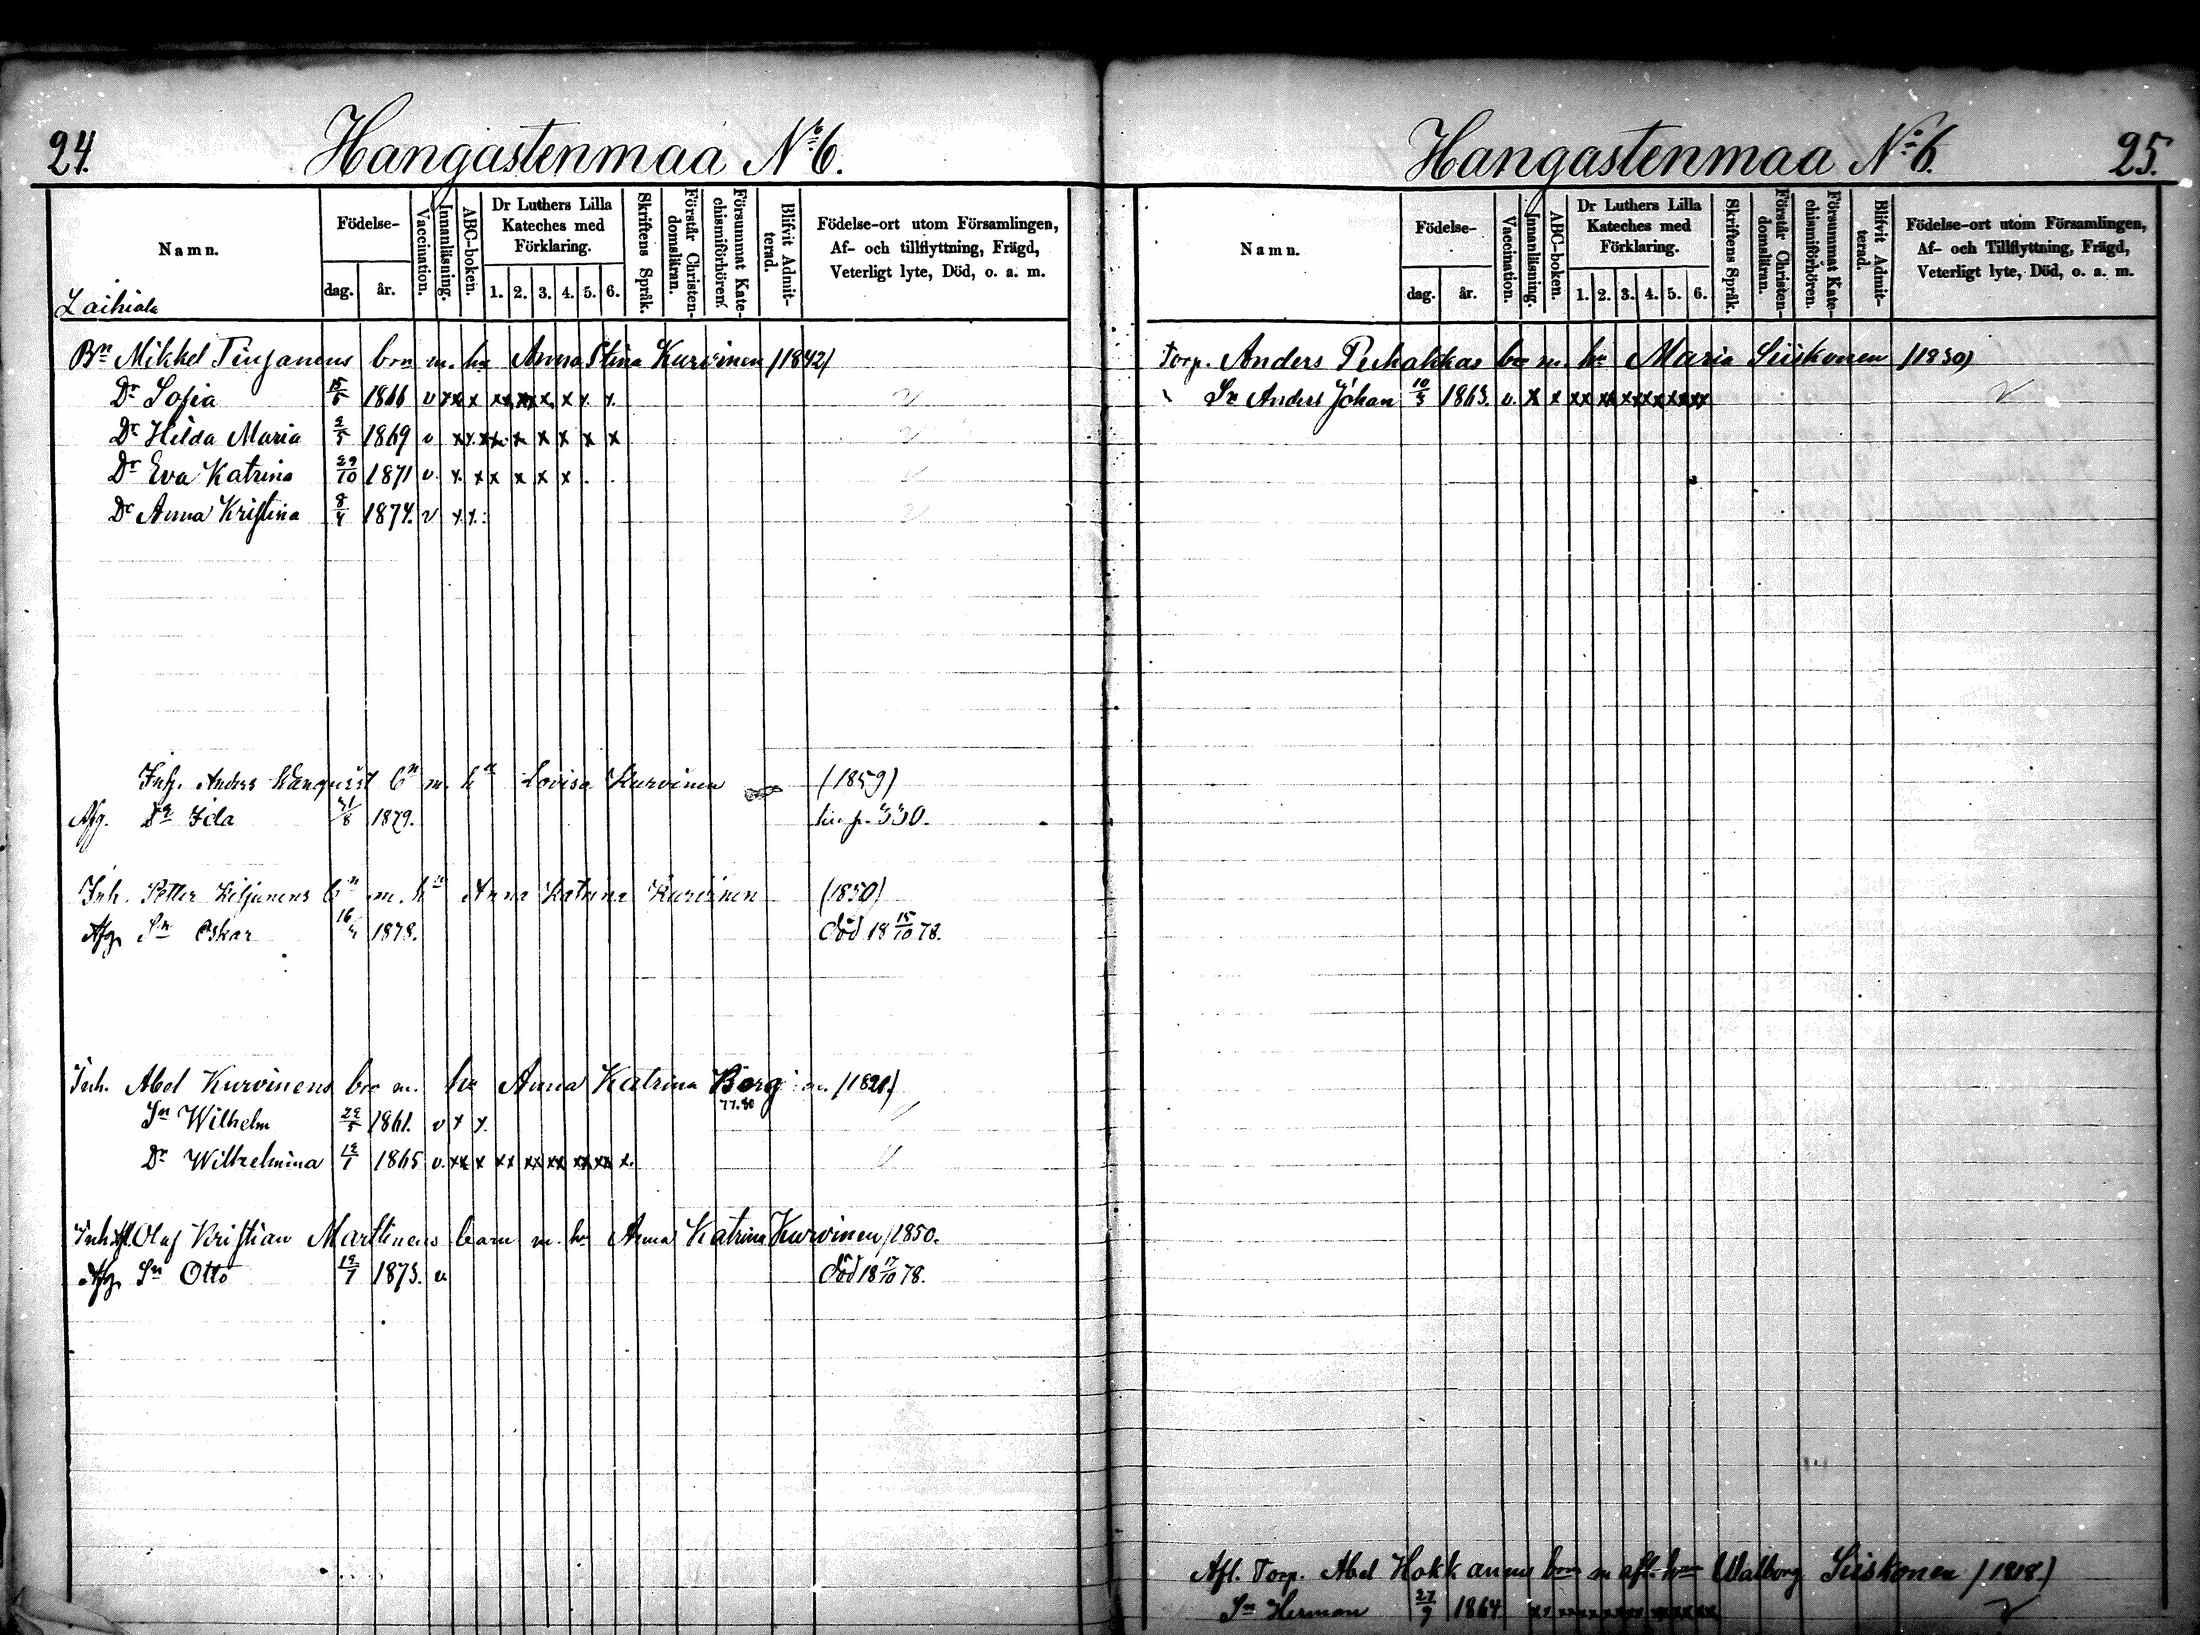 24. Hangastenmaa No 6.
Namn.
Födelse-
dag.
år.
Vaccination.
Innanläsning.
ABC-boken.
Dr Luthers Lilla
Kateches med
Förklaring.
1. 2. 3. 4. 5. 6.
Skriftens Språk.
Förstår Christen-
domsläran.
Försummat Kate-
chismiförhören
Blifvit Admit-
terad.
Födelse-ort utom Församlingen,
Af- och tillflyttning, Frägd,
Veterligt lyte, Död, o. a. m.
Laihiala
Bn Mikkel brn m. hu Anna Stina Kurvinen (1842)
Dr Sofia 15/6 1866 v xx x xx xx x x x x
Dr Hilda Maria 2/5 1869 v xx xx x x x x x
Dr Eva Katrina 29/10 1871 v. x. x x x x x
Dr Anna Kristina 8/4 1874. v x x.
Inh. Anders bn m. hu Lovisa Kurvinen (1859)
Afg. Dr Ida 21/8 1879. p. 330.
Inh. Petter Kiljunens bn m. hu Anna Katrina Kurvinen (1850)
Afg. Sn Oskar 16 1878. död 18 15/10 78.
Inh. Abel Kurvinens brn m. hu Anna Katrina Borg (1821)
77.80
Sn Wilhelm 22/5 1861. v x x.
Dr Wilhelmina 12/1 1865 v. xx x xx xx xx xx xx x.
Inh. Olaf Kristian Martinens barn m. hu Anna Katrina Kurvinen (1850.
Afg. Sn Otto 12/7 1873. v död 18 17/10 78.
Hangastenmaa No 6. 25.
Namn.
Födelse-
dag.
år.
Vaccination.
Innanläsning.
ABC-boken.
Dr Luthers Lilla
Kateches med
Förklaring.
1. 2. 3. 4. 5. 6.
Skriftens Språk.
Förstår Christen-
domsläran.
Försummat Kate-
chismiförhören.
Blifvit Admit-
terad.
Födelse-ort utom Församlingen,
Af- och Tillflyttning, Frägd,
Veterligt lyte, Död, o. a. m.
Torp. Anders Puhakkas brn m. hu Maria Siiskonen (1830)
Sn Anders Johan 10/3 1863. v. x x xx xx xx xx xx xx
Afl. Torp. Abel Hokkanens brn m afl. hu Walborg Siiskonen (1818)
Sn Herman 27/9 1864